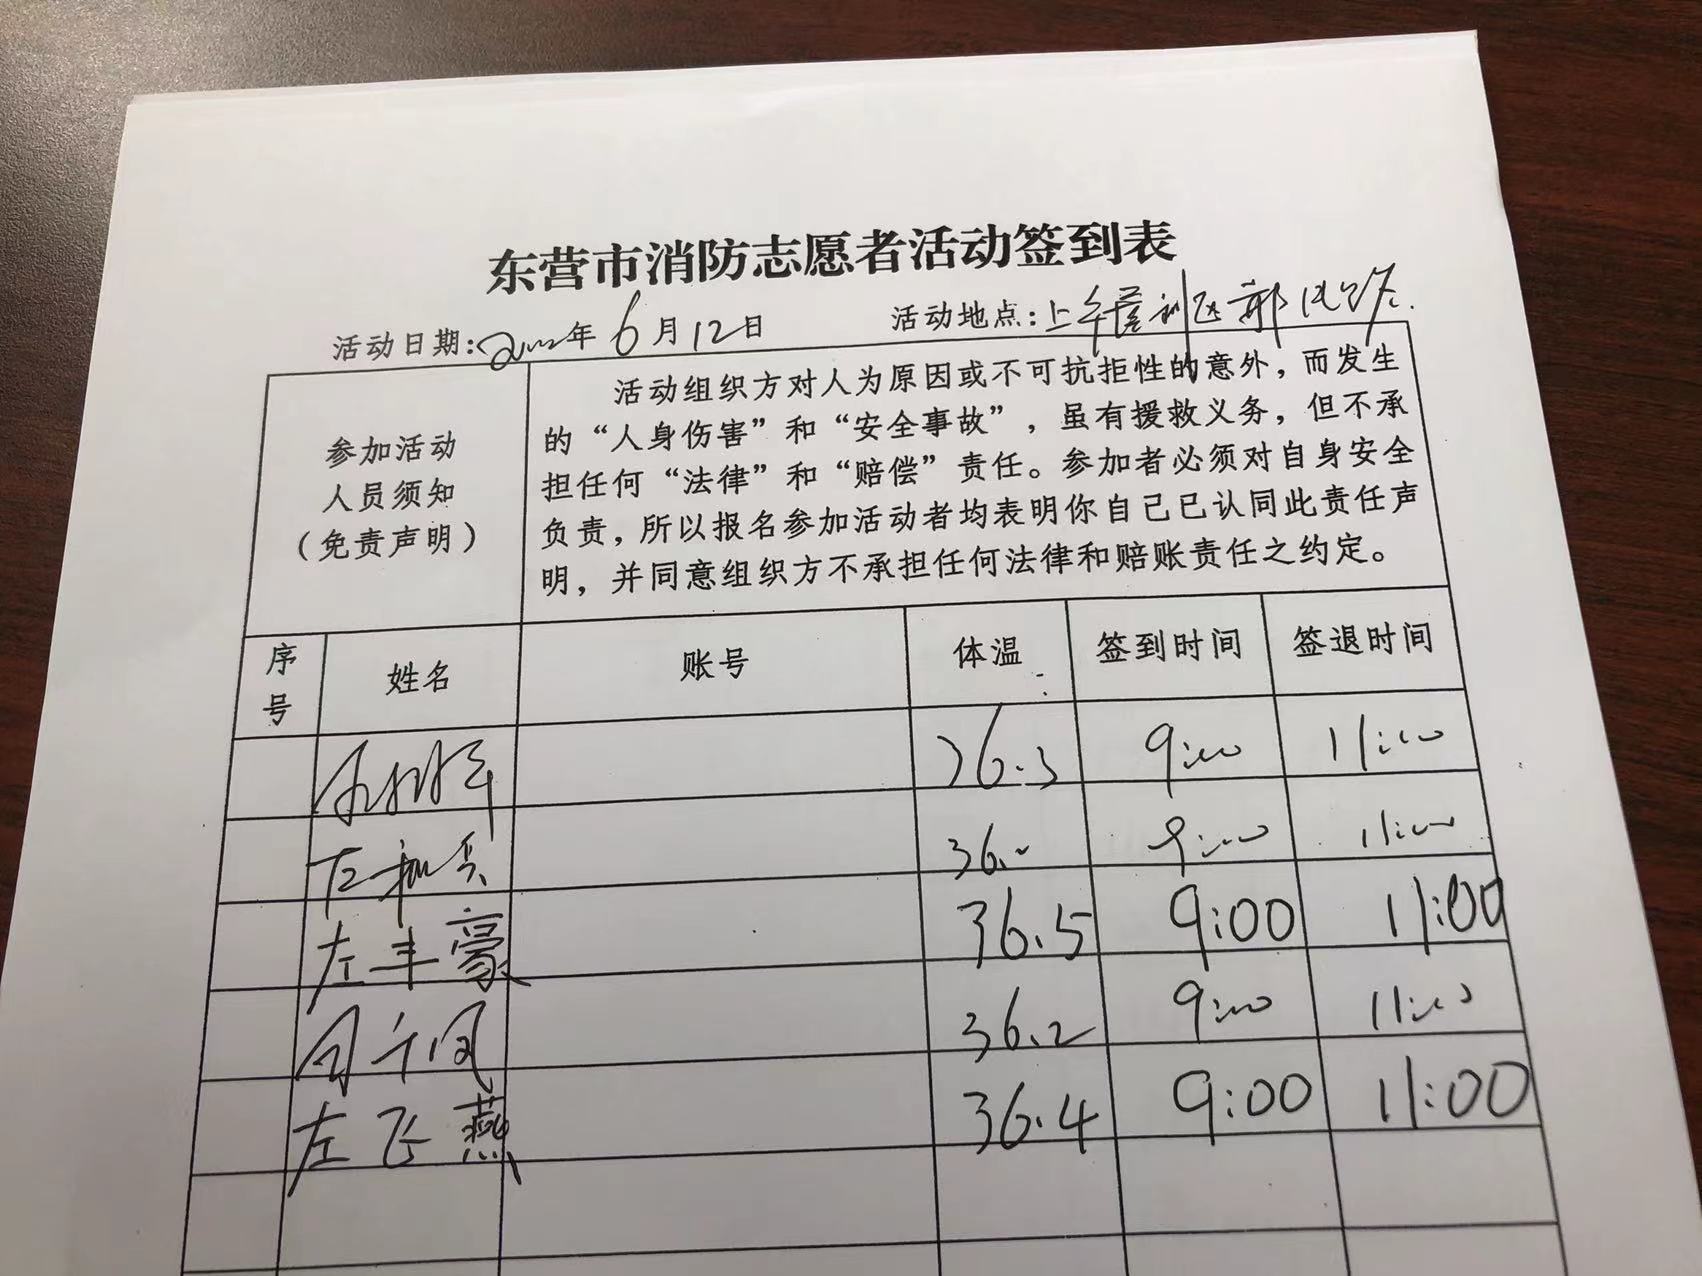 东营市消防志愿者活动签到表
活动日期:2022年6月12日 活动地点:
参加活动
人员须知
(免责声明)
活动组织方对人为原因或不可抗拒性的意外,而发生
的“人身伤害”和“安全事故”,虽有援救义务,但不承
担任何“法律”和“赔偿”责任。参加者必须对自身安全
负责,所以报名参加活动者均表明你自己已认同此责任声
明,并同意组织方不承担任何法律和赔账责任之约定。
序号 姓名 账号 体温 签到时间 签退时间
36.3 9:00 11:00
36. 9:00 11:00
左丰豪 36.5 9:00 11:00
36.2 9:00 11:00
左飞燕 36.4 9:00 11:00